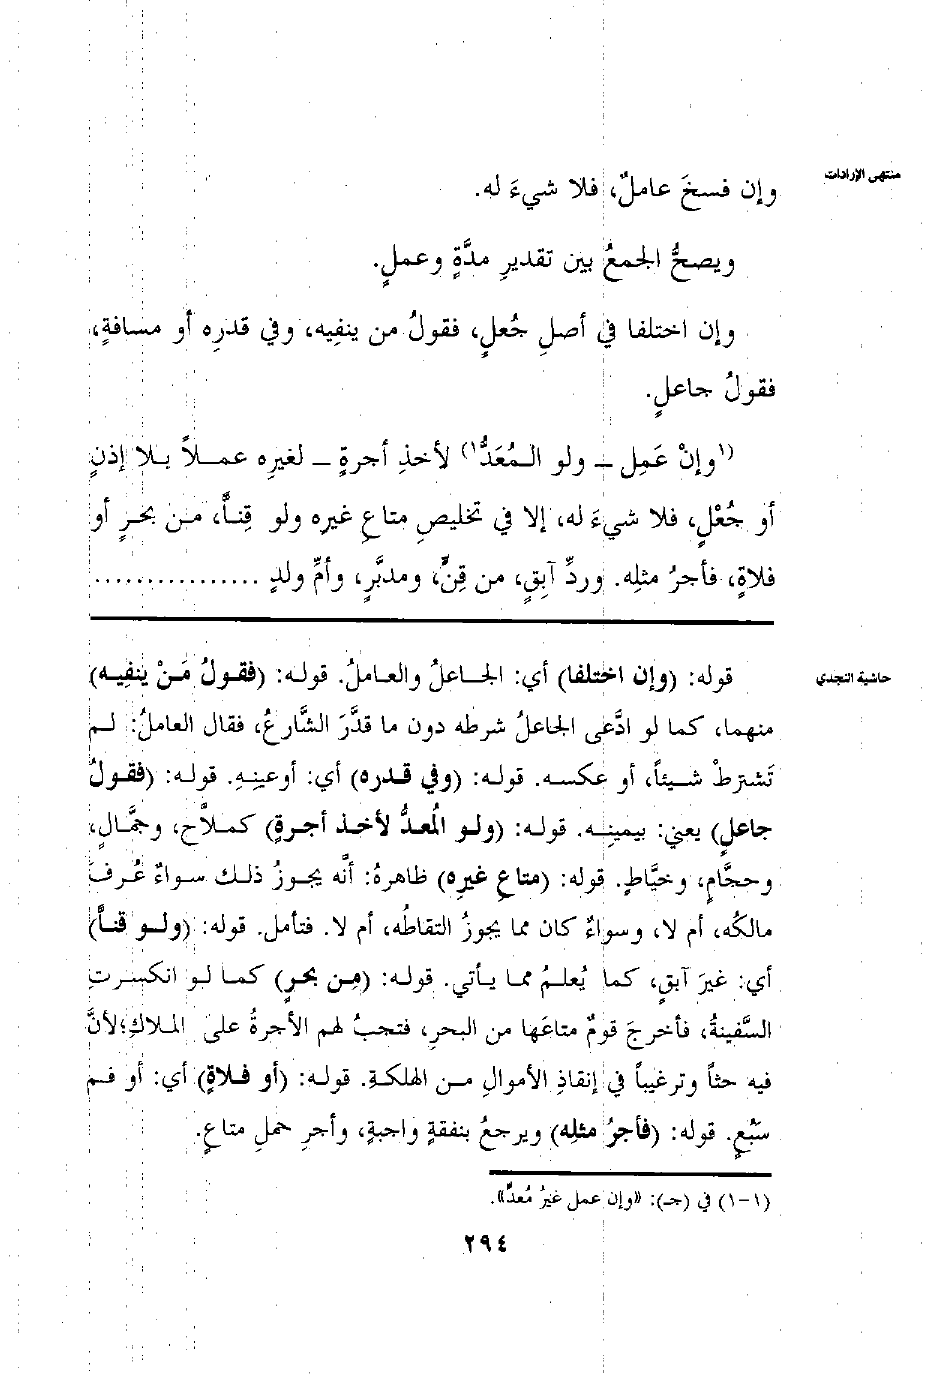 منتهى الإرادات
وإن فسخَ عاملٌ، فلا شيءَ له.
ويصحُّ الجمعُ بين تقديرِ مدَّةٍ وعملٍ.
وإن اختلفا في أصلِ جُعلٍ، فقولُ من ينفِيه، وفي قدرِه أو مسافةٍ،
فقولُ جاعلٍ.
(١وإنْ عَمِل – ولو المُعَدُّ١) لأخذِ أجرةٍ – لغيرِه عملاً بلا إذنٍ
أو جُعْلٍ، فلا شيءَ له، إلا في تخليصِ متاعِ غيرِه ولو قِنًّا، من بحرٍ أو
فلاةٍ، فأجرُ مثلِه. وردِّ آبِقٍ، من قِنٍّ، ومدبَّرٍ، وأمِّ ولدٍ ................
حاشية النجدي
قوله: (وإن اختلفا) أي: الجاعلُ والعاملُ. قوله: (فقولُ مَنْ ينفيه)
منهما، كما لو ادَّعى الجاعلُ شرطه دون ما قدَّرَ الشَّارعُ، فقال العاملُ: لم
تَشترطْ شيئاً، أو عكسه. قوله: (وفي قدره) أي: أوعينِهِ. قوله: (فقولُ
جاعلٍ) يعني: بيمينِه. قوله: (ولو المُعدُّ لأخذ أجرةٍ) كملاَّحٍ، وجمَّالٍ،
وحجَّامٍ، وخيَّاطٍ. قوله: (متاعِ غيرِه) ظاهرهُ: أنَّه يجوزُ ذلك سواءٌ عُرفَ
مالكُه، أم لا، وسواءٌ كان مما يجوزُ التقاطُه، أم لا. فتأمل. قوله: (ولو قنًّا)
أي: غيرَ آبقٍ، كما يُعلمُ مما يأتي. قوله: (مِن بحرٍ) كما لو انكسرتِ
السَّفينةُ، فأخرجَ قومٌ متاعَها من البحرِ، فتجبُ لهم الأجرةُ على الملاكِ؛لأنَّ
فيه حثًّا وترغيباً في إنقاذِ الأموالِ من الهلكةِ. قوله: (أو فلاةٍ) أي: أو فم
سَبُعٍ. قوله: (فأجرُ مثلِه) ويرجعُ بنفقةٍ واجبةٍ، وأجرِ حملِ متاعٍ.
(١-١) في (جـ): «وإن عمل غيرُ مُعدٍّ».
٢٩٤